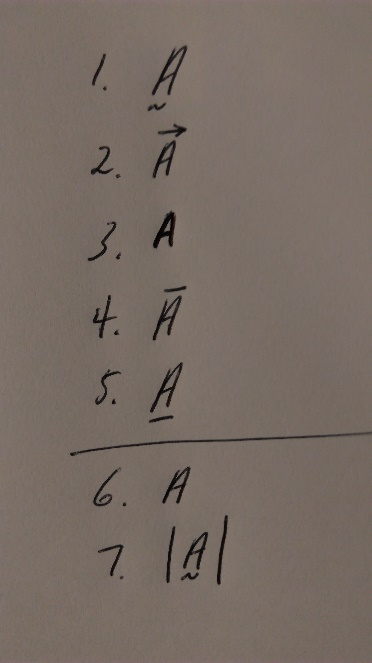 1. A̰
2. A⃗
3. 𝐀
4. A̅
5. A̲
6. A
7. |A̰|